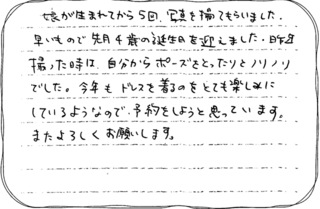 娘が生まれてから5回、写真を撮ってもらいました。
早いもので先月4歳の誕生日を迎えました。昨年
撮った時は、自分からポーズをとったりとノリノリ
でした。今年もドレスを着るのをとても楽しみに
しているようなので、予約をしようと思っています。
またよろしくお願いします。